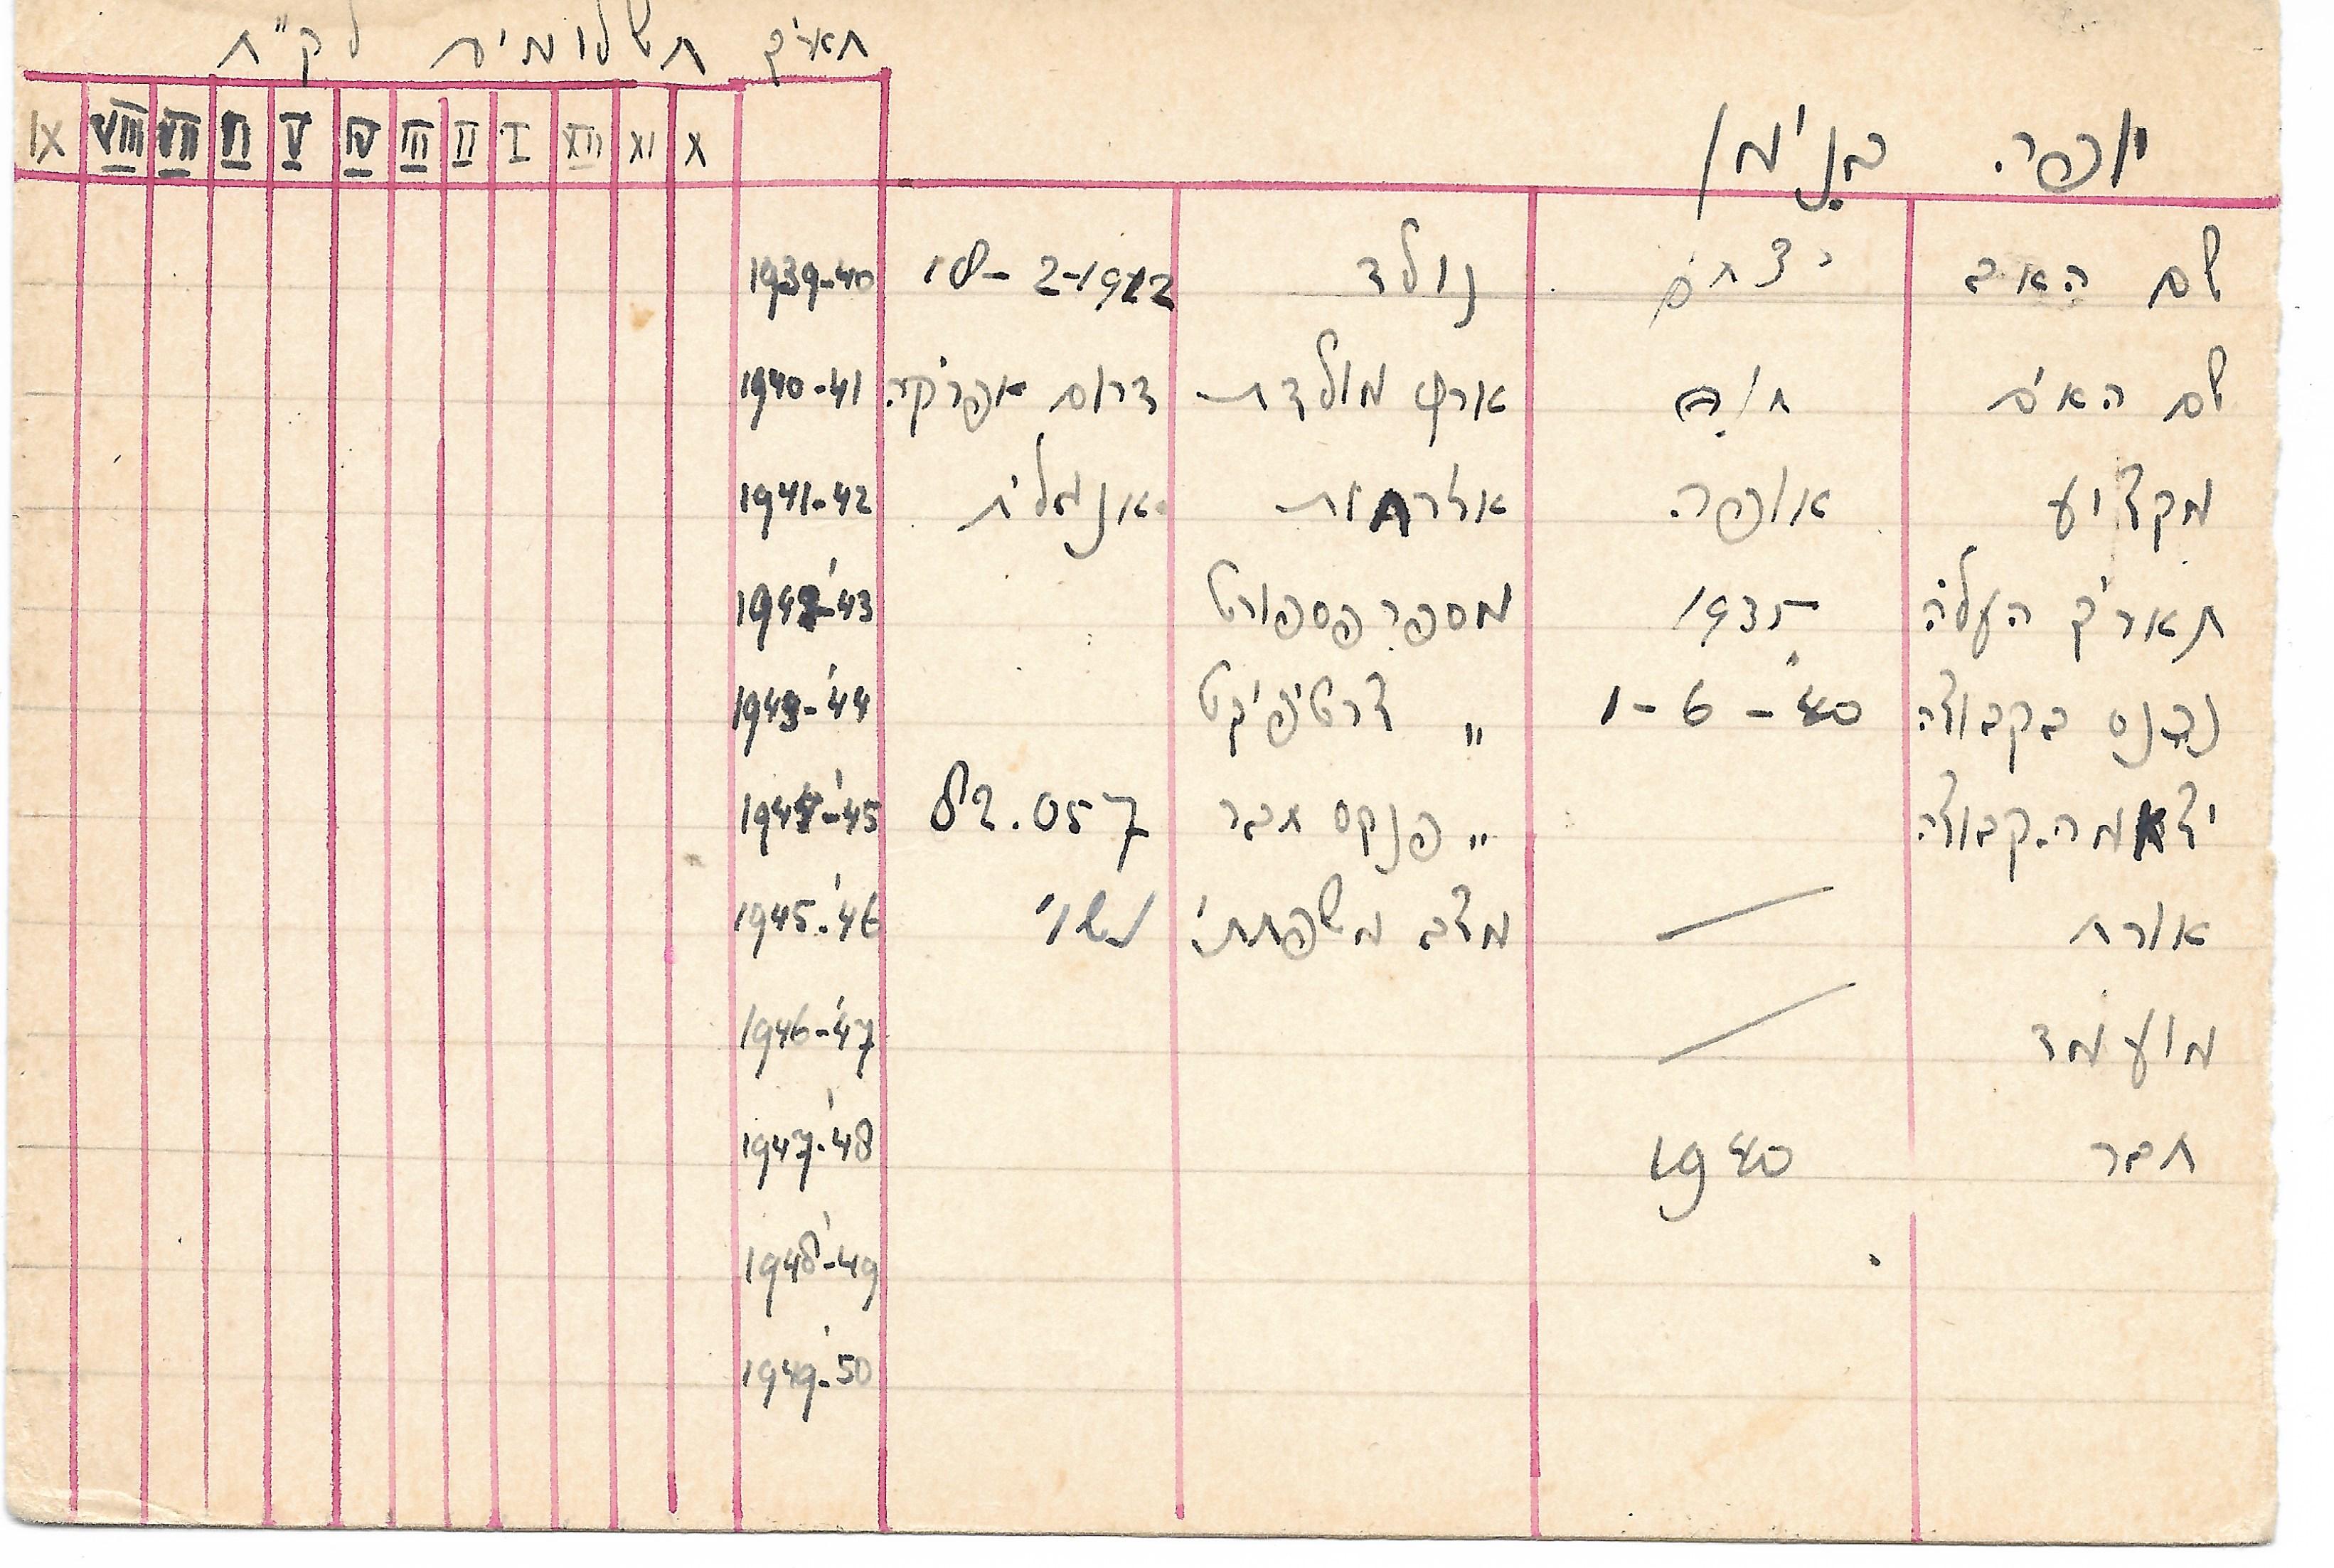 תאריך תשלומים לק"ח
יופה. בנימן
X XI XII I II III IV V VI VII VIII IX
שם האב יצחק נולד 18-2-1912 1939-40
שם האם חיה ארץ מולדת דרום אפריקה. 1940-41
מקצוע אופה. אזרחות אנגלית 1941-42
תאריך העליה 1935 מספר פספורט 1942-'43
נכנס בקבוצה 1-6-40 " צרטיפיקט 1943-'44
יצא מה.קבוצה " פנקס חבר 82.057 1944-'45
אורח — מצב משפחתי נשוי 1945-'46
מועמד — 1946-'47
חבר 1940 1947-'48
1948-'49
1949-'50